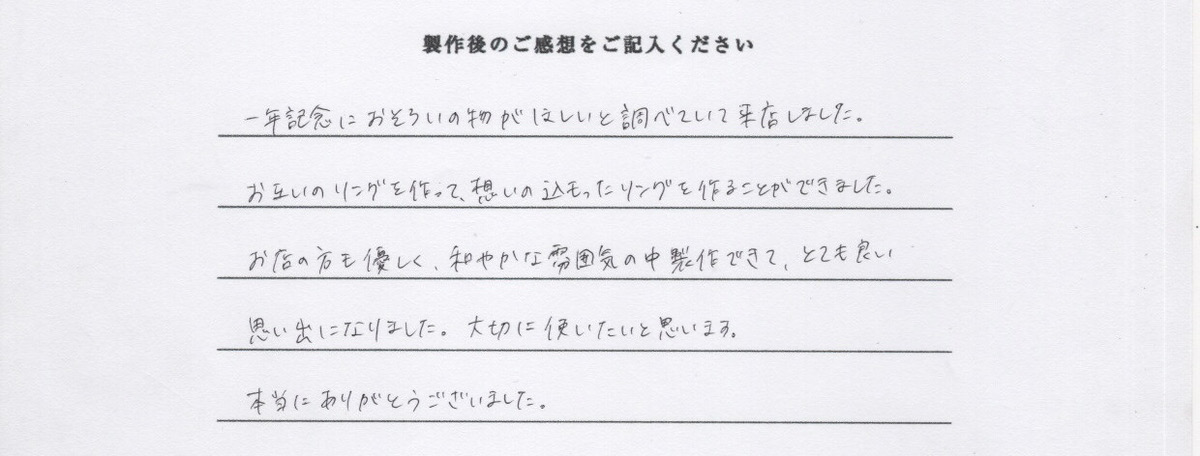 製作後のご感想をご記入ください
一年記念におそろいの物がほしいと調べていて来店しました。
お互いのリングを作って、想いの込もったリングを作ることができました。
お店の方も優しく、和やかな雰囲気の中製作できて、とても良い
思い出になりました。大切に使いたいと思います。
本当にありがとうございました。